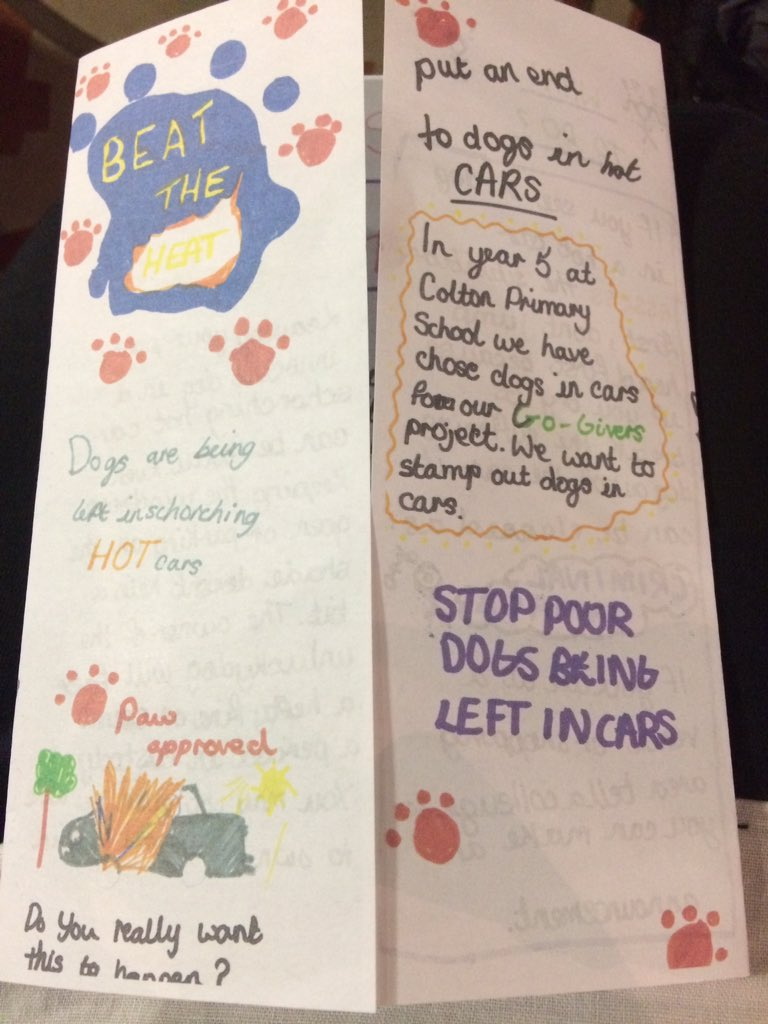 BEAT
THE
HEAT
Dogs are being
left in schorching
HOT cars
Paw
approved
Do You really want
this to happen?
put an end
to dogs in hot
CARS
In year 5 at
Colton Primary
School we have
chose dogs in cars
for our Go-Givers
project. We want to
stamp out dogs in
cars.
STOP POOR
DOGS BEING
LEFT IN CARS